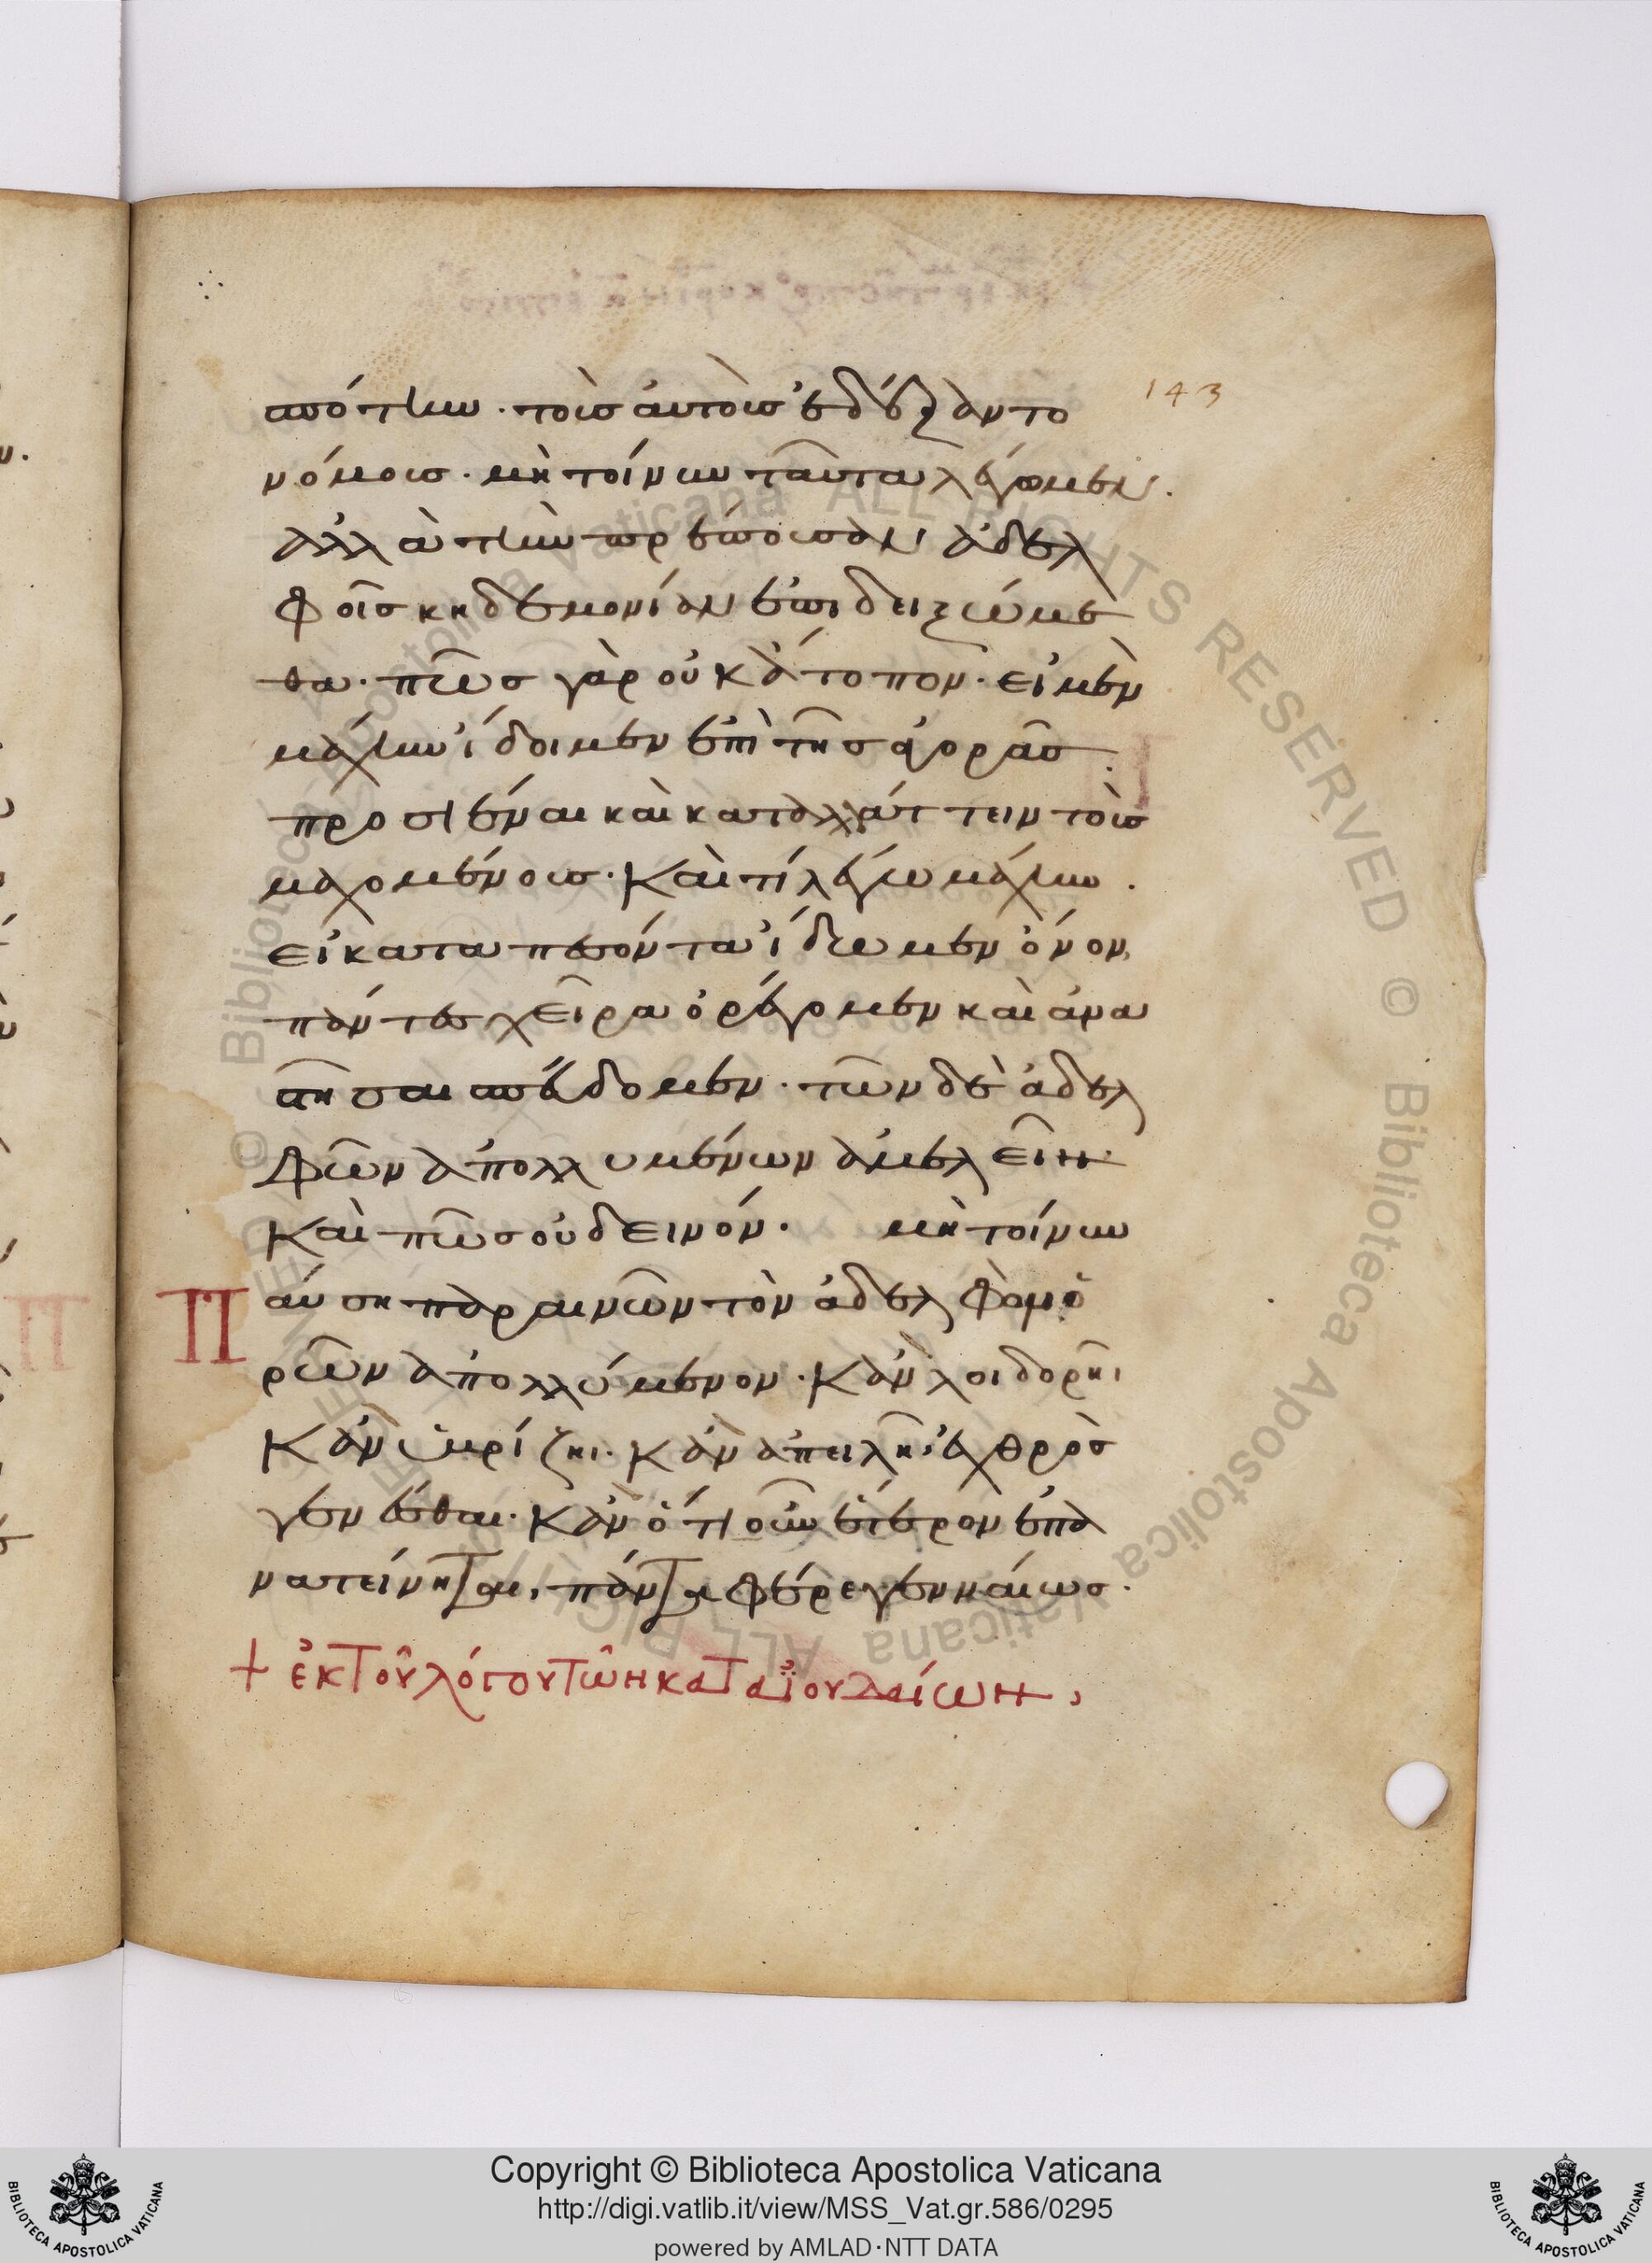 143
ἀπόντων. τοῖς αὐτοῖς ἐδέξαντο
νόμοις. μὴ τοίνυν ταῦτα λέγωμεν.
ἀλλὰ τὴν πρέπουσαν ἀδελ
φοῖς κηδεμονίαν ἐπιδειξώμε
θα. πῶς γὰρ οὐκ ἄτοπον. εἰ μὲν
μάχην ἴδοιμεν ἐπὶ τῆς ἀγορᾶς
προσιέναι καὶ καταλλάττειν τοῖς
μαχομένοις. Καὶ τί λέγω μάχην.
εἰ καταπεσόντα ἴδωμεν ὄνον,
πάντες χεῖρα ὀρέγομεν καὶ ἀνα
στῆσαι σπεύδομεν. τῶν δὲ ἀδελ
φῶν ἀπολλυμένων ἀμελεῖν.
Καὶ πῶς οὐ δεινόν. μὴ τοίνυν
Παύση παραινῶν τὸν ἀδελφὸν ὁ
ρῶν ἀπολλύμενον. Κἂν λοιδορῆι
Κἂν ὑβρίζηι. Κἂν ἀπειλῆι ἐχθρὸς
γενέσθαι. Κἂν ὁτιοῦν ἕτερον ἐπα
νατείνηται, πάντα φέρε γενναίως.
+ ἐκ τοῦ λόγου τῶν κατὰ ἰουδαίων,
Copyright © Biblioteca Apostolica Vaticana
http://digi.vatlib.it/view/MSS_Vat.gr.586/0295
powered by AMLAD·NTT DATA
BIBLIOTECA APOSTOLICA VATICANA
BIBLIOTECA APOSTOLICA VATICANA
© Biblioteca Apostolica Vaticana ALL RIGHTS RESERVED